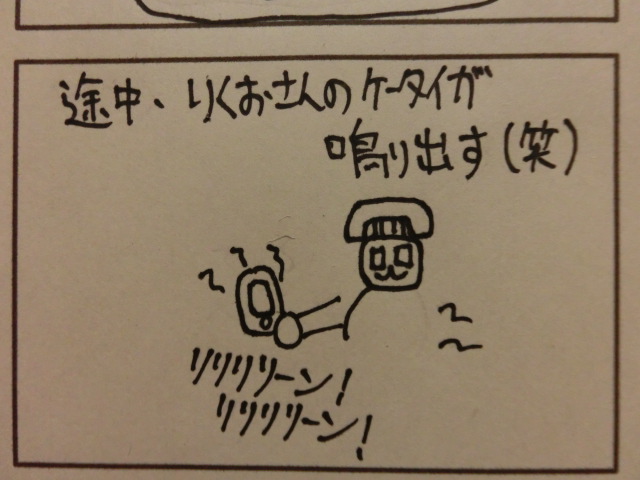 途中、りくおさんのケータイが
鳴り出す(笑)
リリリリーン!
リリリリーン!